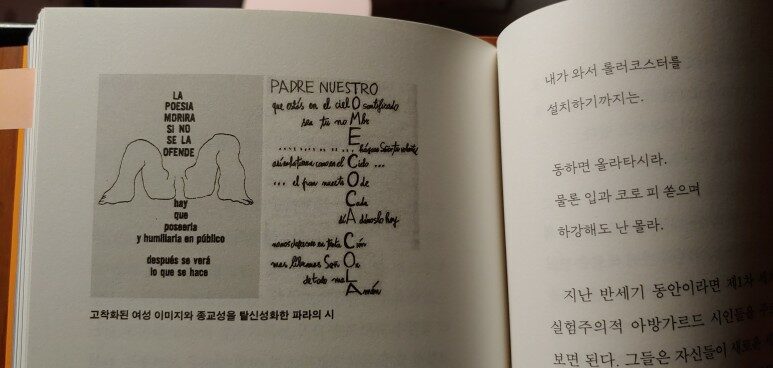 LA
POESIA
MORIRA
SI NO
SE LA
OFENDE
hay
que
poseerla
y humillarla en público
después se verá
lo que se hace
PADRE NUESTRO
que estás en el cielO santificado
sea tu noMbre
en el Cielo ...
... el pan nuestrO de
Cada
díA dánoslo hoy
SeñOr
de todo maL
Amén
고착화된 여성 이미지와 종교성을 탈신성화한 파라의 시
내가 와서 롤러코스터를
설치하기까지는.
동하면 올라타시라.
물론 입과 코로 피 쏟으며
하강해도 난 몰라.
지난 반세기 동안이라면 제1차
실험주의적 아방가르드 시인들을
보면 된다. 그들은 자신들이 새로운